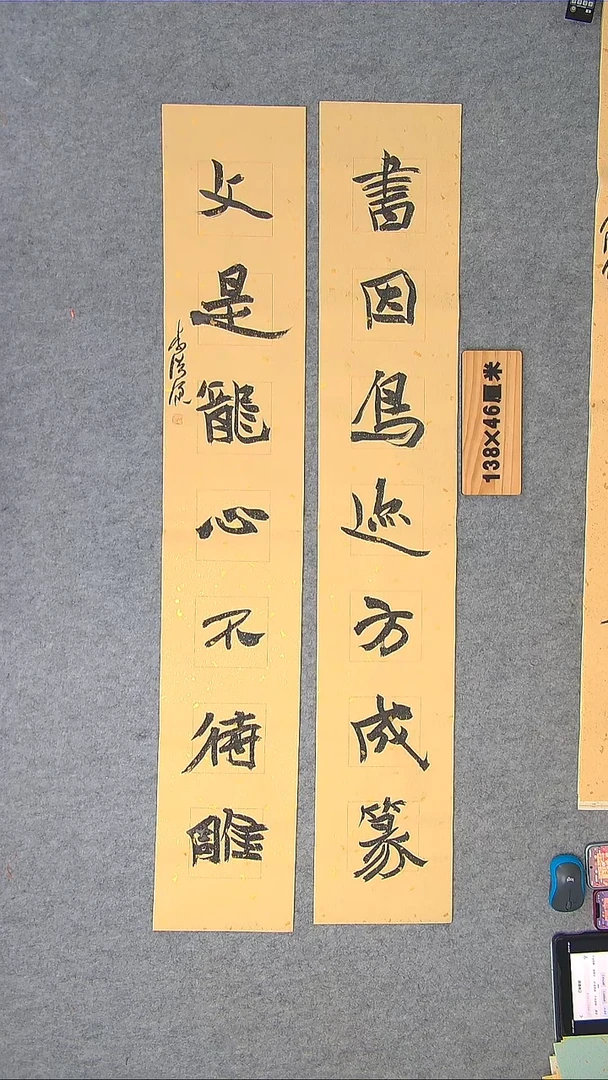 書因鳥巡方成篆
文是龍心不待雕
138×46厘米